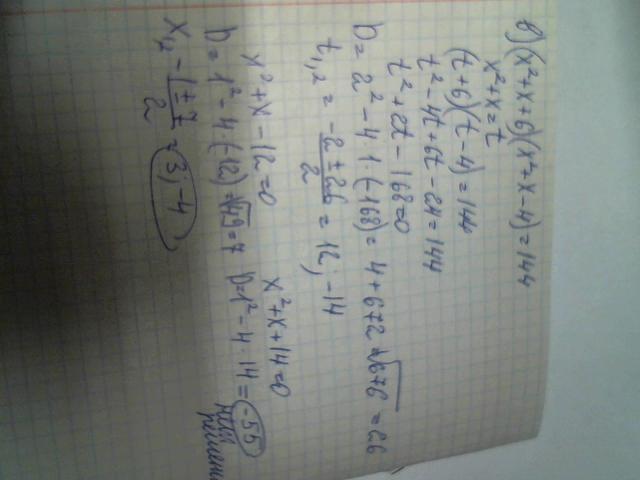 в) (x²+x+6)(x²+x-4)=144
x²+x=t
(t+6)(t-4)=144
t²-4t+6t-24=144
t²+2t-168=0
D= 2²-4·1·(-168)=4+672=√676=26
t₁,₂ = (-2±26)/2 = 12; -14
x²+x-12=0
D= 1²-4(-12)=√49=7
x₁,₂ - (1±7)/2 = 3; -4
x²+x+14=0
D=1²-4·14= -55
нет
решений